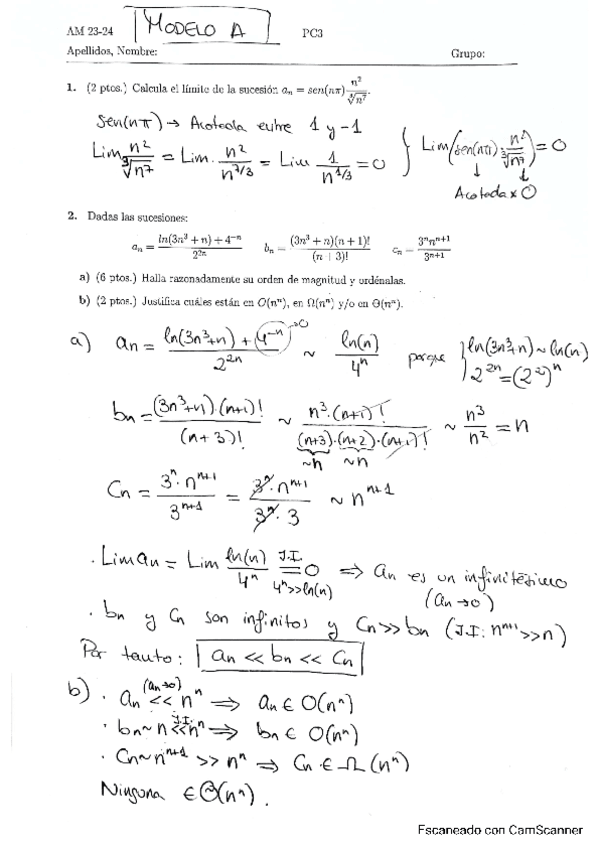 AM 23-24 MODELO A PC3
Apellidos, Nombre: Grupo:
1. (2 ptos.) Calcula el límite de la sucesión a_n = sen(nπ) n²/∛n⁷.
Sen(nπ) → Acotada entre 1 y -1
Lim n²/∛n⁷ = Lim. n²/n^(7/3) = Lim 1/n^(1/3) = 0 } Lim(sen(nπ) n²/∛n⁷) = 0
Acotada x 0
2. Dadas las sucesiones:
a_n = (ln(3n³ + n) + 4^(-n))/2^(2n) b_n = (3n³ + n)(n + 1)!/(n + 3)! c_n = 3^n n^(n+1)/3^(n+1)
a) (6 ptos.) Halla razonadamente su orden de magnitud y ordénalas.
b) (2 ptos.) Justifica cuáles están en O(n^n), en Ω(n^n) y/o en Θ(n^n).
a) a_n = (ln(3n³+n) + 4^(-n) → 0)/2^(2n) ~ ln(n)/4^n porque } ln(3n³+n) ~ ln(n)
2^(2n) = (2²)^n
b_n = (3n³+n)·(n+1)!/(n+3)! ~ n³·(n+1)!/((n+3)·(n+2)·(n+1)!) ~ n³/n² = n
~n ~n
C_n = 3^n · n^(n+1)/3^(n+1) = 3^n · n^(n+1)/(3^n · 3) ~ n^(n+1)
· Lim a_n = Lim ln(n)/4^n = 0 ⟹ a_n es un infinitésimo
J.I. 4^n >> ln(n) (a_n → 0)
· b_n y C_n son infinitos y C_n >> b_n (J.I: n^(n+1) >> n)
Por tanto: a_n << b_n << C_n
b) · a_n << n^n ⟹ a_n ∈ O(n^n)
(a_n → 0)
· b_n ~ n << n^n ⟹ b_n ∈ O(n^n)
J.I.
· C_n ~ n^(n+1) >> n^n ⟹ C_n ∈ Ω(n^n)
Ninguna ∈ Θ(n^n).
Escaneado con CamScanner